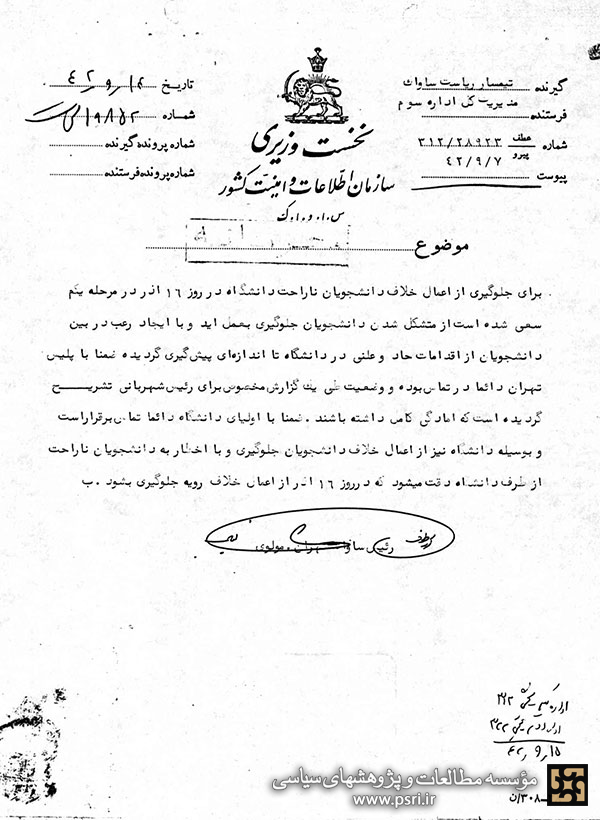 گیرنده تیمسار ریاست ساواک
مدیریت کل اداره سوم
فرستنده
شماره عطف پیرو ۳۱۲/۲۸۹۲۳
۴۲/۹/۷
پیوست
نخست وزیری
سازمان اطلاعات و امنیت کشور
س.ا.و.ا.ک
تاریخ ۴۲/۹/۱۴
شماره ۱۹۸۵۲
شماره پرونده گیرنده
شماره پرونده فرستنده
موضوع
برای جلوگیری از اعمال خلاف دانشجویان ناراحت دانشگاه در روز ۱۶ اذر در مرحله یکم
سعی شده است از متشکل شدن دانشجویان جلوگیری بعمل اید و با ایجاد رعب در بین
دانشجویان از اقدامات حاد و علنی در دانشگاه تا اندازه‌ای پیش‌گیری گردیده ضمنا با پلیس
تهران دائما در تماس بوده و وضعیت طی یک گزارش مخصوص برای رئیس شهربانی تشریح
گردیده است که امادگی کامل داشته باشند . ضمنا با اولیای دانشگاه دائما تماس برقرار است
و بوسیله دانشگاه نیز از اعمال خلاف دانشجویان جلوگیری و با اخطار به دانشجویان ناراحت
از طرف دانشگاه دقت میشود که در روز ۱۶ اذر از اعمال خلاف رویه جلوگیری بشود . ب
رئیس ساواک تهران . مولوی
۴۲/۹/۱۵
۳۰۸/ن
مؤسسه مطالعات و پژوهشهای سیاسی
www.psri.ir